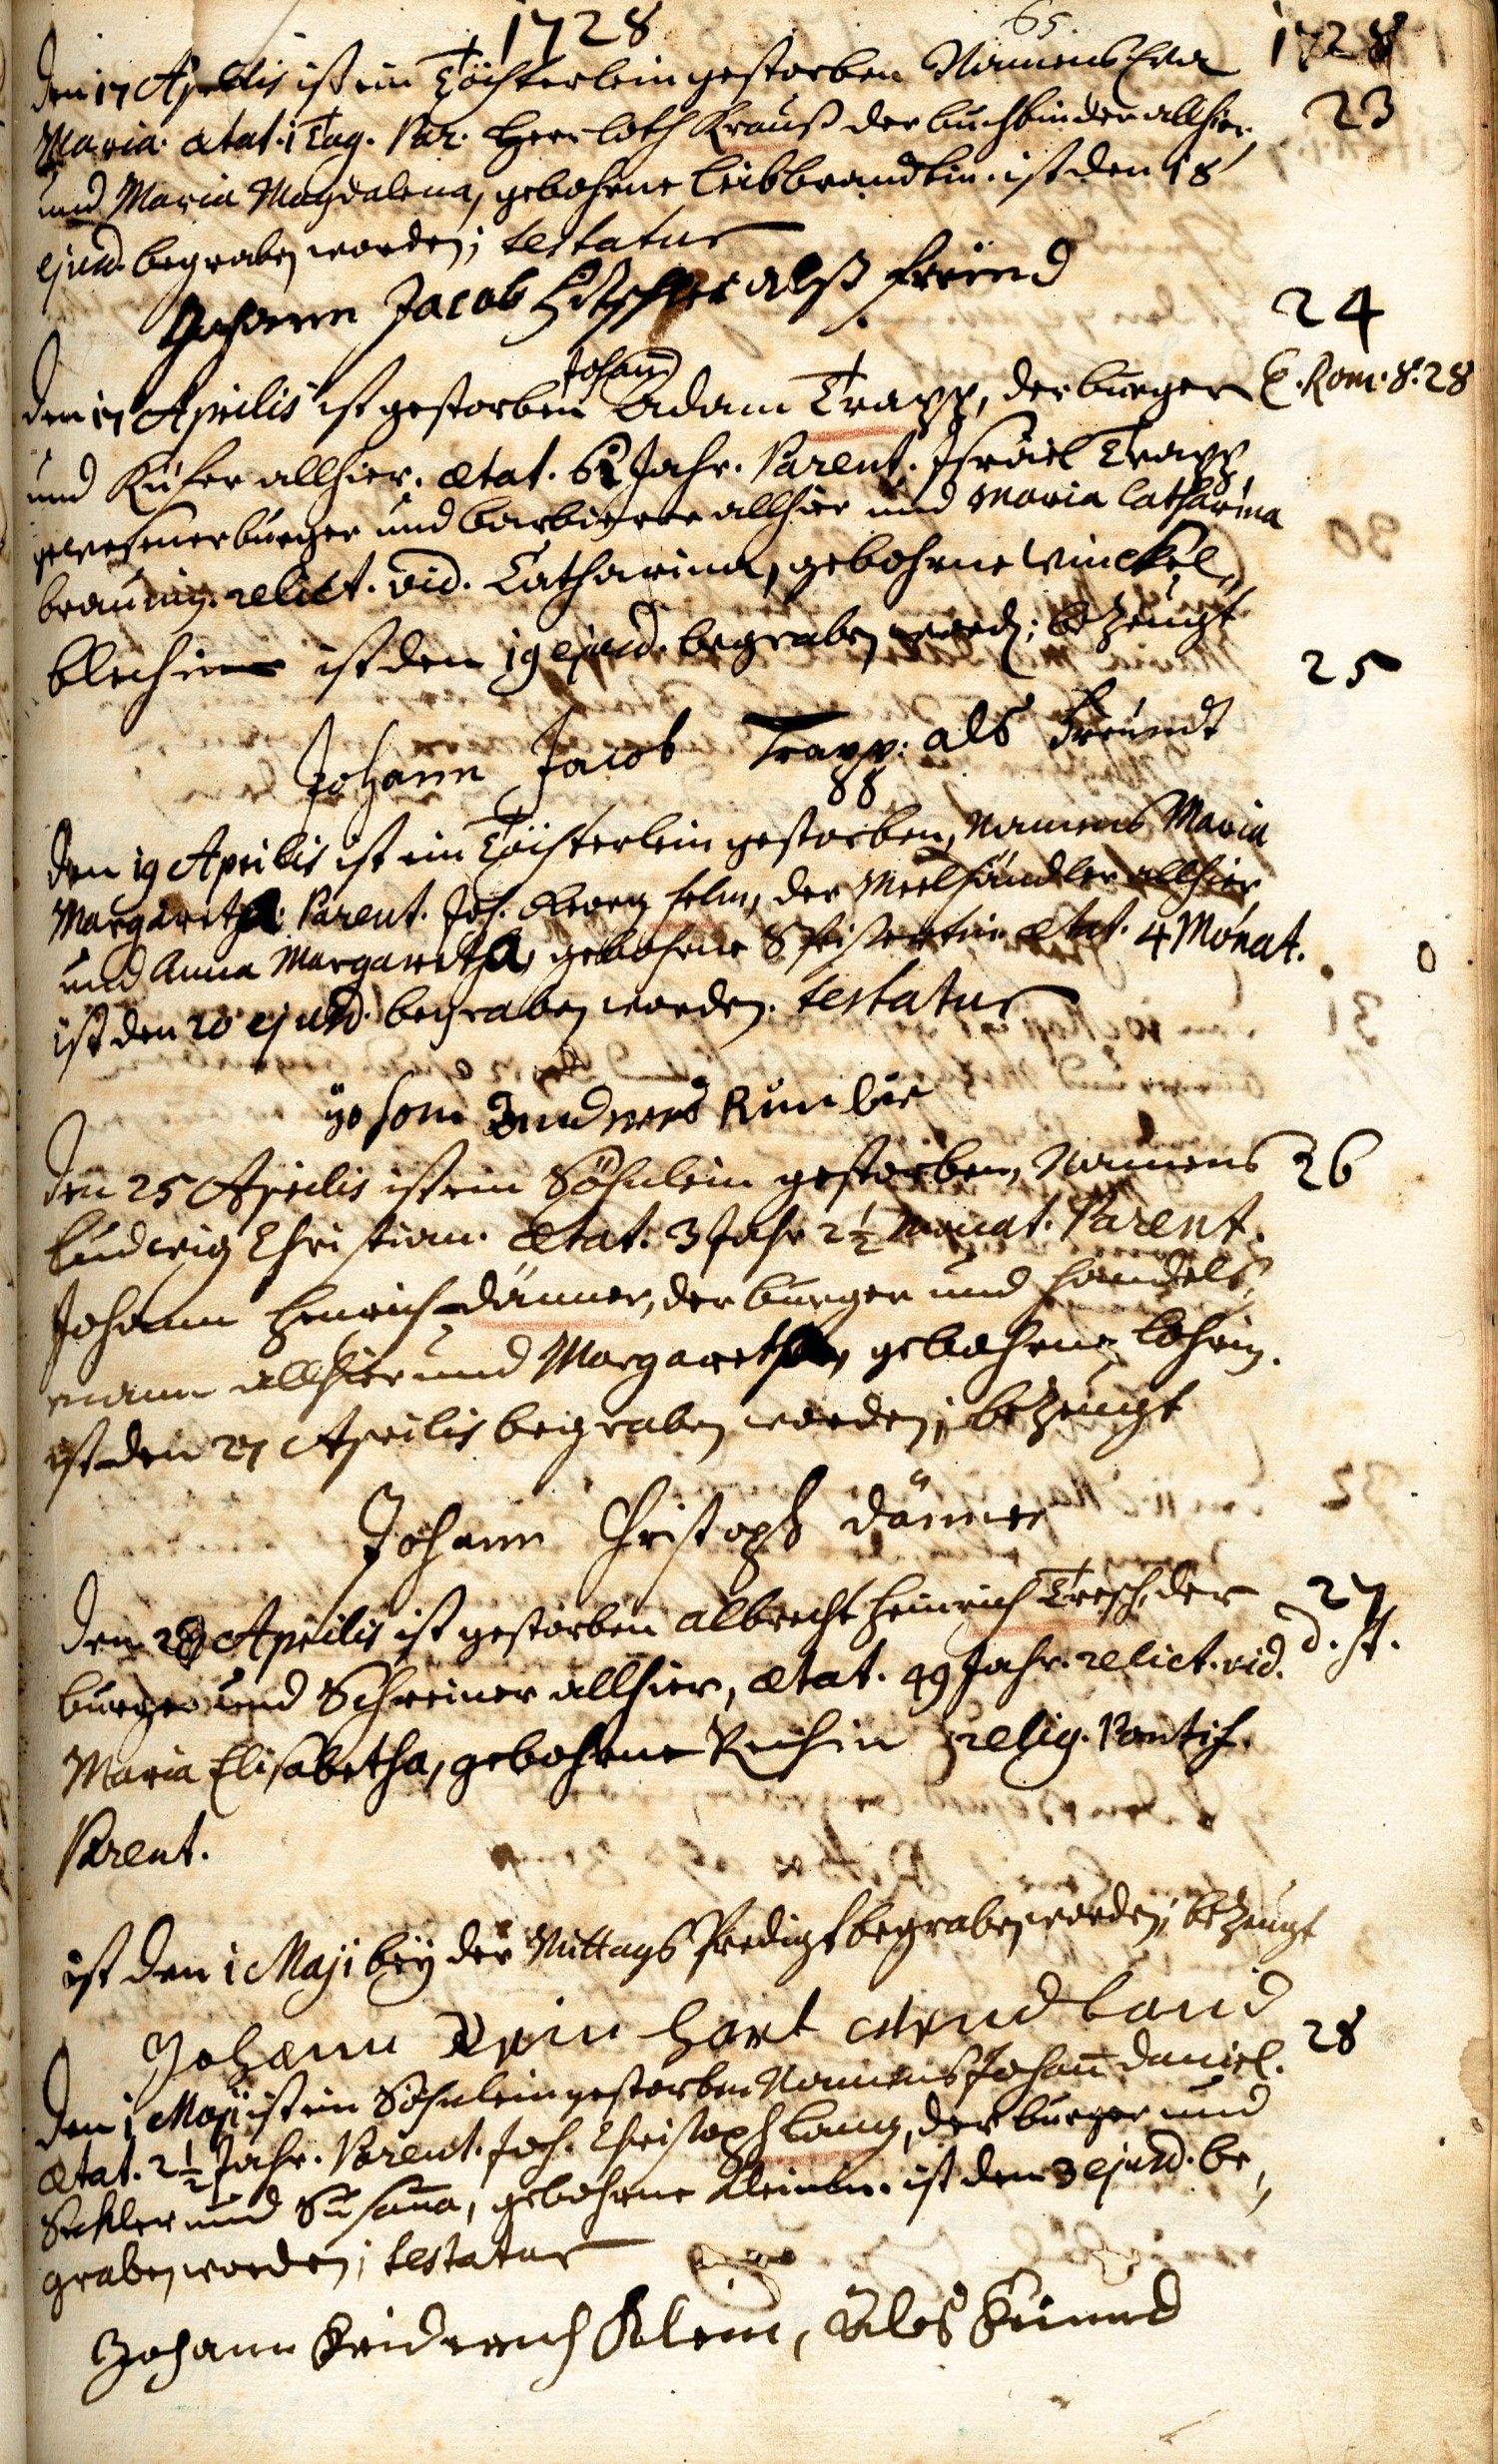 1728
65.
1728
den 17 Aprilis ist ein Töchterlein gestorben Namens Eva
23
Maria. ætat. 1 Tag. Par. Herr Loth Krauß der buchbinder allhier,
und Maria Magdalena, gebohrne Leibbrandtin. ist den 18
ejusd. begraben worden; testatur
Johann Jacob als freind
24
den 17 Aprilis ist gestorben Johann Adam Trapp, der burger
C. Rom. 8. 28
und Küfer allhier. ætat. 62 Jahr. Parent. Israel Trapp
gewesener burger und barbierer allhier und Maria Catharina
brauin. relict. vid. Catharina, gebohrne Winckel„
blechin ist den 19 ejusd. begraben word; bezeugt
25
Johann Jacob Trapp: als Freundt
den 19 Aprilis ist ein Töchterlein gestorben, Namens Maria
Margaretha. Parent. Joh. Georg Helm, der Meelhändler allhier
und Anna Margaretha, gebohrne ætat. 4 Monat.
ist den 20 ejusd. begraben worden. testatur
den 25 Aprilis ist ein Söhnlein gestorben, Namens
26
Ludwig Christian. ætat. 3 Jahr 2½ Monat. Parent.
Johann Henrich Dänner, der burger und handels„
mann allhier und Margaretha, gebohrne Lohrin.
ist den 27 Aprilis begraben worden; bezeugt
Johann Christoph Dänner
den 28 Aprilis ist gestorben Albrecht Heinrich Tresch, der
27
d. H.
burger und Schreiner allhier, ætat. 49 Jahr. relict. vid.
Maria Elisabetha, gebohrne Reichin relig. Pontif.
Parent.
ist den 1 Maji bey der Mittags Predigt begraben worden; bezeugt
Johann Rein hart Wendland
28
den 1 Maji ist ein Söhnlein gestorben Namens Johann Daniel.
ætat. 2½ Jahr. Parent. Joh. Christoph Lang, der burger und
Seckler und Susanna, gebohrne Kleinin. ist den 3 ejusd. be„
graben worden; testatur
Johann Fridrich Klein, Als freund